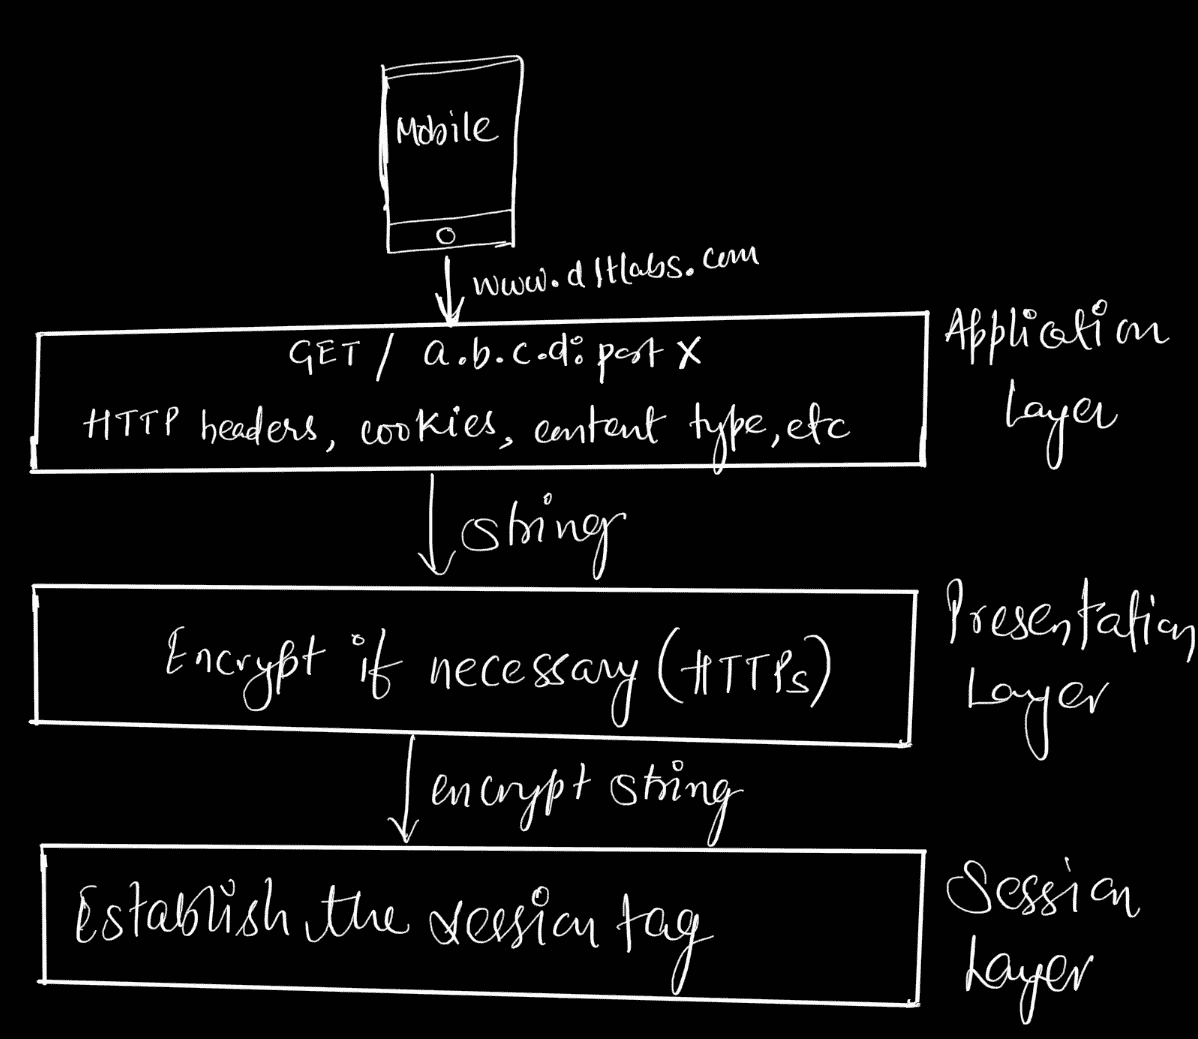 Mobile
www.dltlabs.com
GET / a.b.c.d: port X
HTTP headers, cookies, content type, etc
Application
Layer
string
Encrypt if necessary (HTTPs)
Presentation
Layer
encrypt string
Establish the session tag
Session
Layer